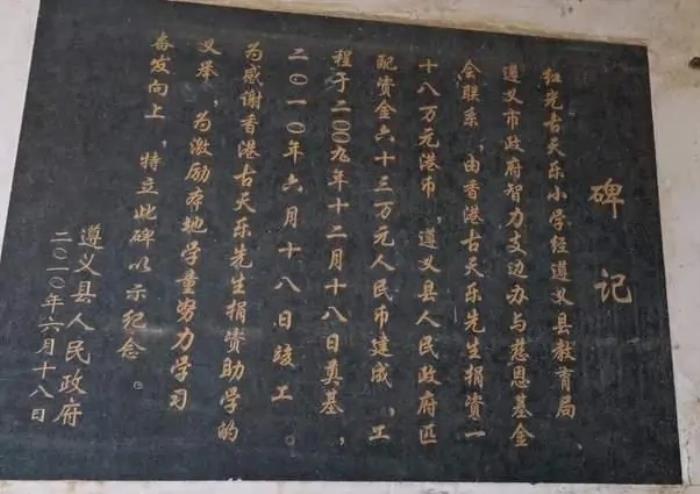 碑记
红光古天乐小学经遵义县教育局、
遵义市政府智力支边办与慈恩基金
会联系，由香港古天乐先生捐资一
十八万元港币，遵义县人民政府匹
配资金六十三万元人民币建成，工
程于二00九年十二月十八日奠基，
二0一0年六月十八日竣工。
为感谢香港古天乐先生捐资助学的
义举，为激励本地学童努力学习
奋发向上，特立此碑以示纪念。
遵义县人民政府
二0一0年六月十八日